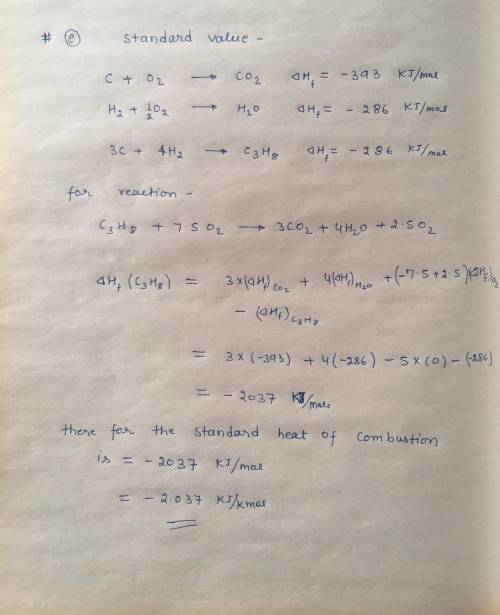 # (e) Standard value -
C + O2 → CO2 ΔHf = -393 KJ/mol
H2 + 1/2 O2 → H2O ΔHf = - 286 KJ/mol
3C + 4H2 → C3H8 ΔHf = - 286 KJ/mol
for reaction -
C3H8 + 7.5O2 → 3CO2 + 4H2O + 2.5O2
ΔHf (C3H8) = 3×(ΔHf)CO2 + 4(ΔHf)H2O + (-7.5+2.5)(ΔHf)O2
- (ΔHf)C3H8
= 3×(-393) + 4(-286) - 5×(0) - (-286)
= - 2037 KJ/mole
there for the standard heat of combustion
is = - 2037 KJ/mol
= - 2.037 KJ/kmol